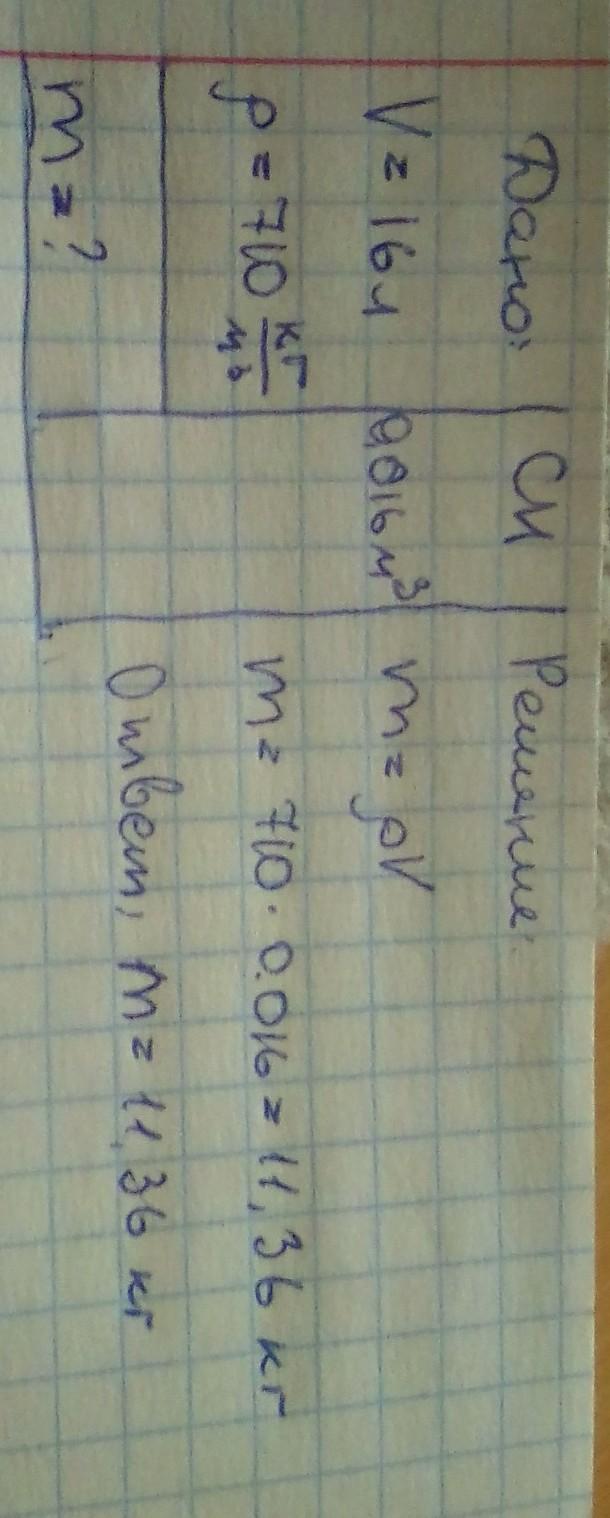 Дано:
V = 16 л
ρ = 710 кг/м³
m = ?
СИ
0,016 м³
Решение:
m = ρV
m = 710 · 0.016 = 11,36 кг
Ответ, m = 11,36 кг